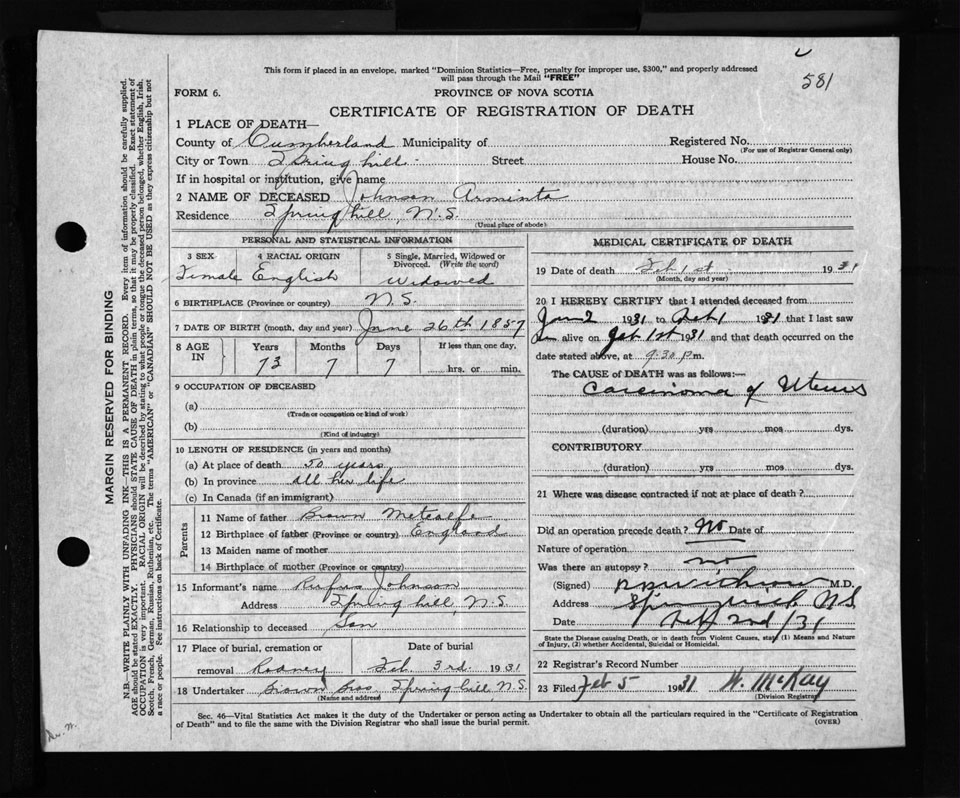 581
This form if placed in an envelope, marked "Dominion Statistics—Free, penalty for improper use, $300," and properly addressed
will pass through the Mail "FREE"
FORM 6.
PROVINCE OF NOVA SCOTIA
CERTIFICATE OF REGISTRATION OF DEATH
1 PLACE OF DEATH—
County of Cumberland Municipality of
Registered No.
(For use of Registrar General only)
City or Town Spring hill Street House No.
If in hospital or institution, give name
2 NAME OF DECEASED Johnson Arminta
Residence Spring hill, N.S.
(Usual place of abode)
PERSONAL AND STATISTICAL INFORMATION
3 SEX 4 RACIAL ORIGIN 5 Single, Married, Widowed or
Divorced. (Write the word)
Female English Widowed
6 BIRTHPLACE (Province or country) N.S.
7 DATE OF BIRTH (month, day and year) June 26th 1857
8 AGE IN Years Months Days If less than one day,
73 7 7 hrs. or min.
9 OCCUPATION OF DECEASED
(a)
(Trade or occupation or kind of work)
(b)
(Kind of industry)
10 LENGTH OF RESIDENCE (in years and months)
(a) At place of death 50 years
(b) In province all her life
(c) In Canada (if an immigrant)
Parents
11 Name of father Brown Metcalfe
12 Birthplace of father (Province or country) England
13 Maiden name of mother
14 Birthplace of mother (Province or country)
15 Informant's name Rufus Johnson
Address Spring hill, N.S.
16 Relationship to deceased Son
17 Place of burial, cremation or Date of burial
removal Rodney Feb 3rd 1931
18 Undertaker Brown Bros Spring hill N.S.
(Name and address)
MEDICAL CERTIFICATE OF DEATH
19 Date of death Feb 1st 1931
(Month, day and year)
20 I HEREBY CERTIFY that I attended deceased from
Jan 2 1931 to Feb 1 1931 that I last saw
alive on Feb 1st 1931 and that death occurred on the
date stated above, at 9.30 p.m.
The CAUSE of DEATH was as follows:—
Carcinoma of Uterus
(duration) yrs mos dys.
CONTRIBUTORY
(duration) yrs. mos. dys.
21 Where was disease contracted if not at place of death?
Did an operation precede death? No Date of
Nature of operation
Was there an autopsy? no
(Signed) M.D.
Address Springhill N.S.
Date Feb 2nd/31
State the Disease causing Death, or in death from Violent Causes, state (1) Means and Nature
of Injury, (2) whether Accidental, Suicidal or Homicidal.
22 Registrar's Record Number
23 Filed Feb 5 1931 W. McKay
(Division Registrar)
Sec. 46—Vital Statistics Act makes it the duty of the Undertaker or person acting as Undertaker to obtain all the particulars required in the "Certificate of Registration
of Death" and to file the same with the Division Registrar who shall issue the burial permit.
(OVER)
MARGIN RESERVED FOR BINDING
N.B.—WRITE PLAINLY WITH UNFADING INK—THIS IS A PERMANENT RECORD. Every item of information should be carefully supplied.
AGE should be stated EXACTLY. PHYSICIANS should STATE CAUSE OF DEATH in plain terms, so that it may be properly classified. Exact statement of
OCCUPATION is very important. RACIAL ORIGIN will be described by stating to what people or tongue the deceased person belonged, whether English, Irish,
Scotch, French, German, Russian, Ruthenian, etc. The terms "AMERICAN" or "CANADIAN" SHOULD NOT BE USED as they express citizenship but not
a race or people. See instructions on back of Certificate.